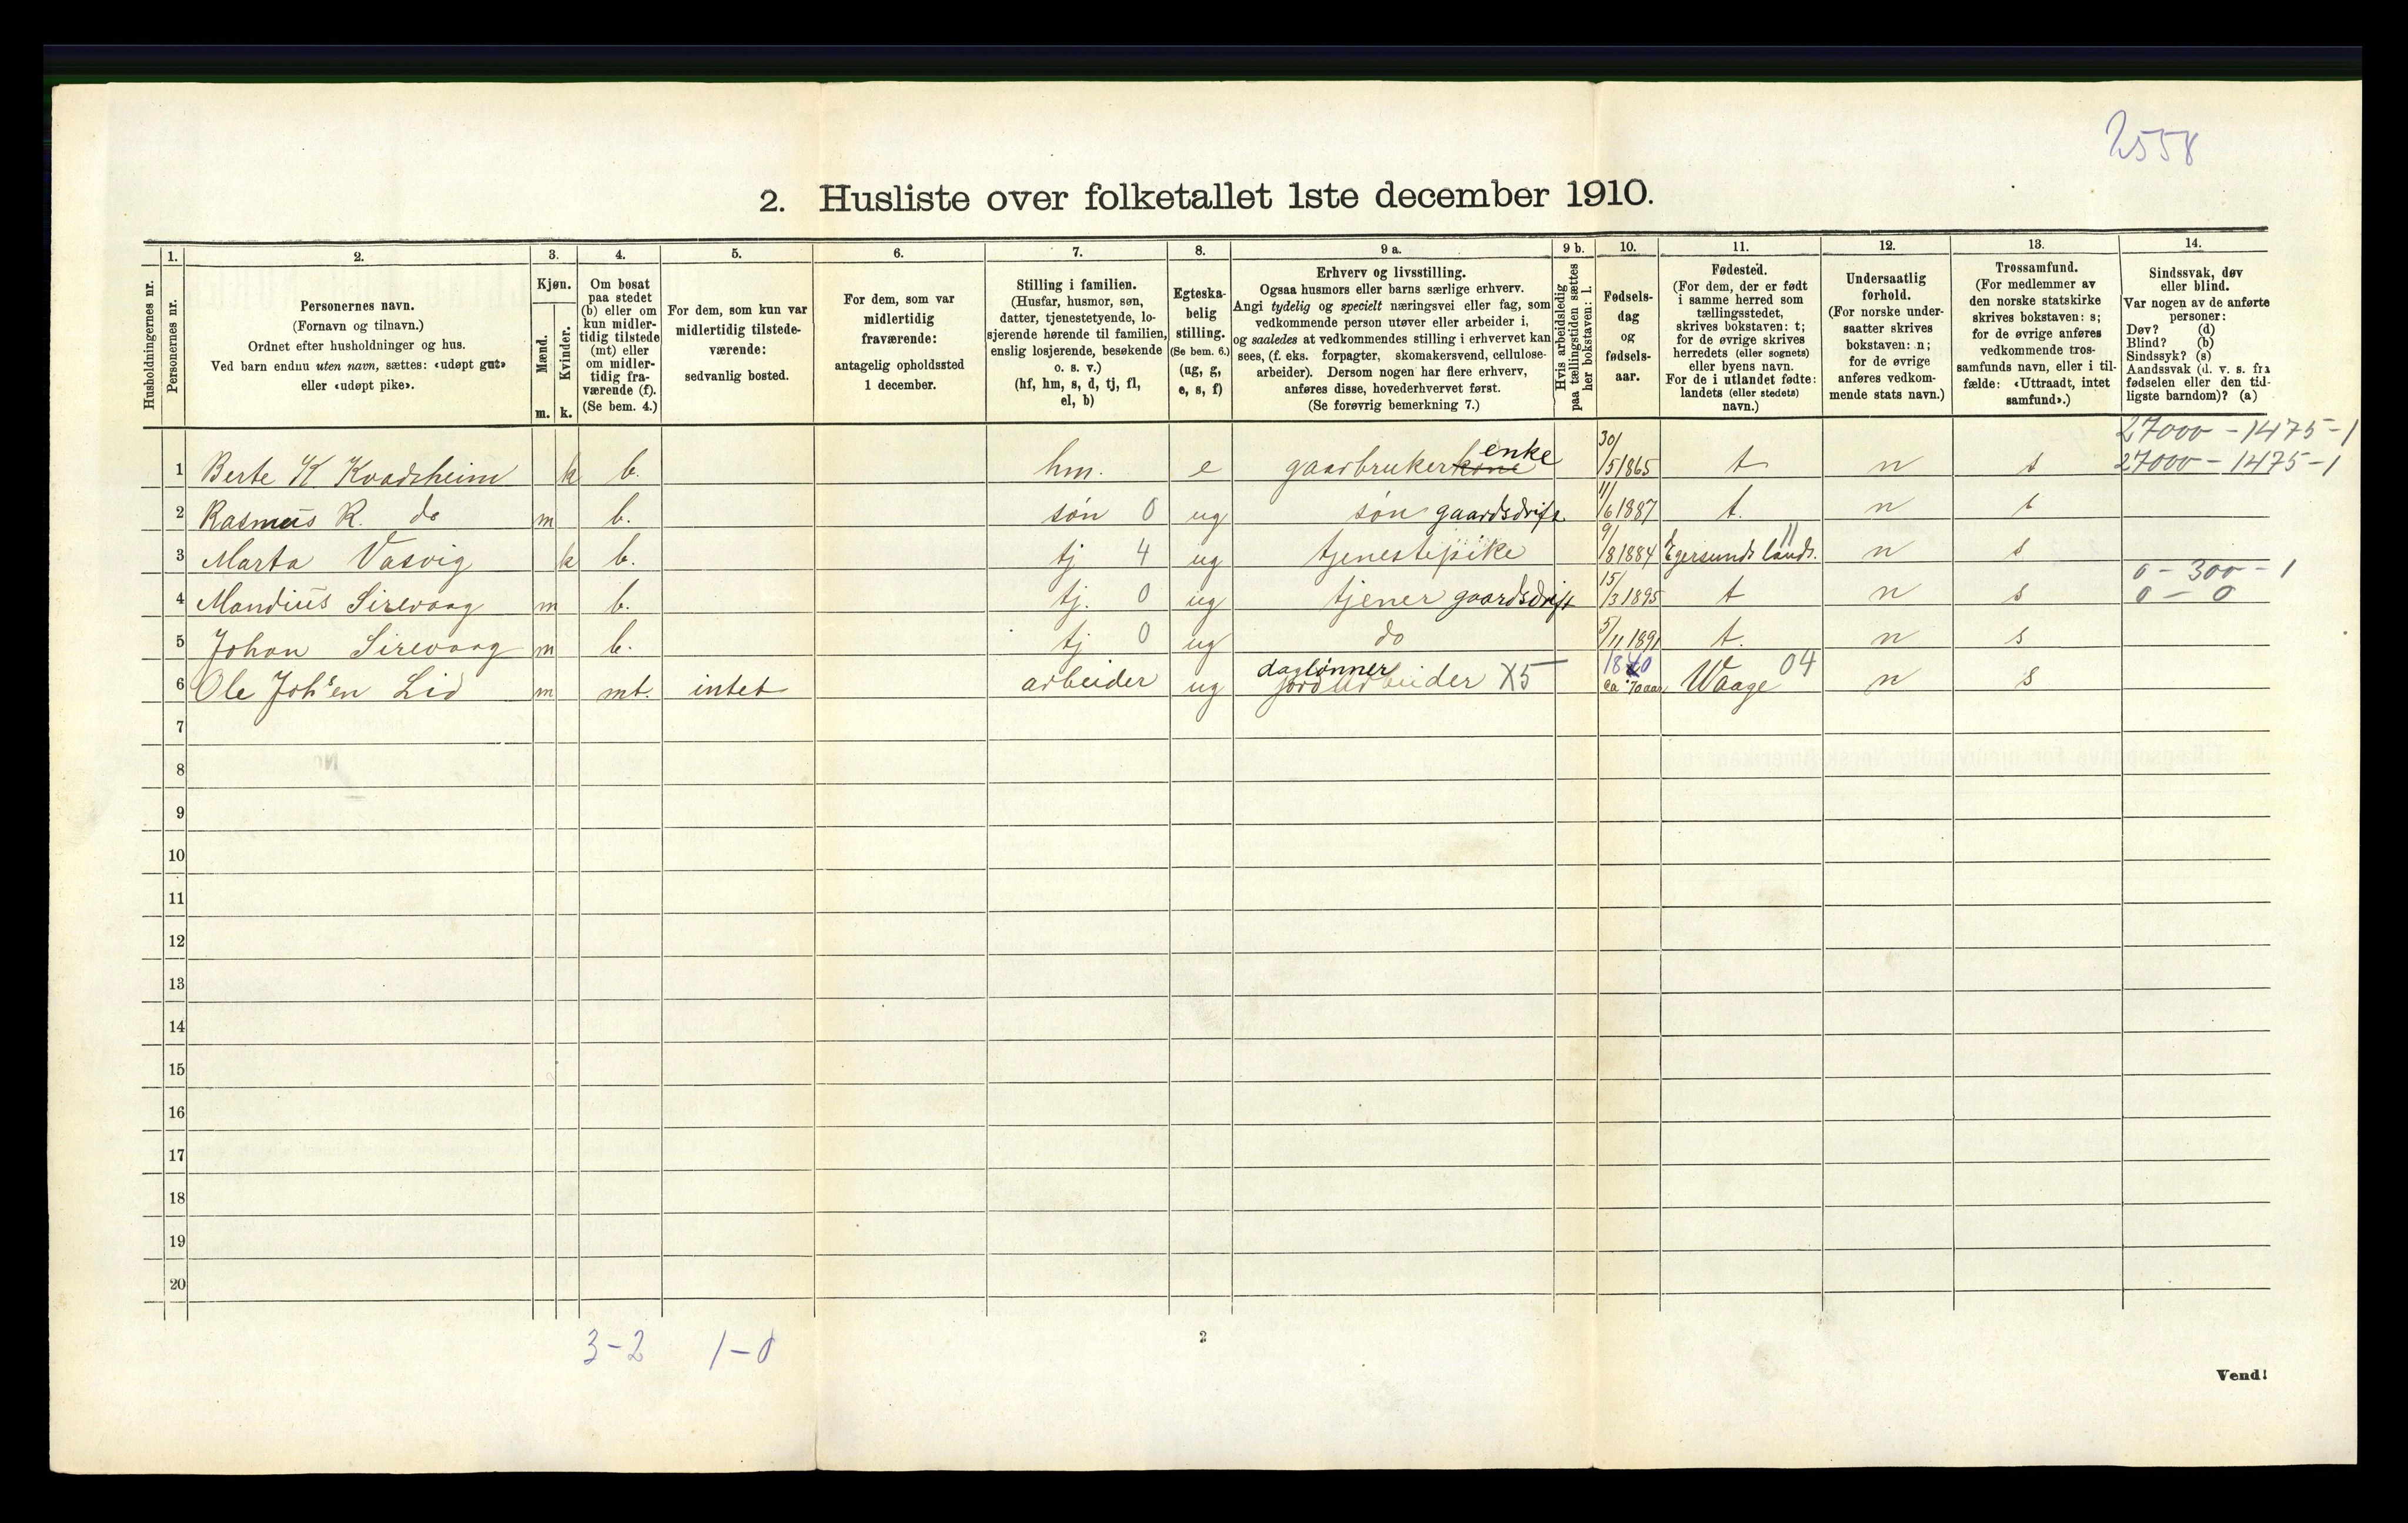 2558
2. Husliste over folketallet 1ste december 1910.
Husholdningernes nr.
1.
Personernes nr.
2.
Personernes navn.
(Fornavn og tilnavn.)
Ordnet efter husholdninger og hus.
Ved barn endnu uten navn, sættes: «udøpt gut»
eller «udøpt pike».
3.
Kjøn.
Mænd.
Kvinder.
m. k.
4.
Om bosat
paa stedet
(b) eller om
kun midler-
tidig tilstede
(mt) eller
om midler-
tidig fra-
værende (f).
(Se bem. 4.)
5.
For dem, som kun var
midlertidig tilstede-
værende:
sedvanlig bosted.
6.
For dem, som var
midlertidig
fraværende:
antagelig opholdssted
1 december.
7.
Stilling i familien.
(Husfar, husmor, søn,
datter, tjenestetyende, lo-
sjerende hørende til familien,
enslig losjerende, besøkende
o. s. v.)
(hf, hm, s, d, tj, fl,
el, b)
8.
Egteska-
belig
stilling.
(Se bem. 6.)
(ug, g,
e, s, f)
9 a.
Erhverv og livsstilling.
Ogsaa husmors eller barns særlige erhverv.
Angi tydelig og specielt næringsvei eller fag, som
vedkommende person utøver eller arbeider i,
og saaledes at vedkommendes stilling i erhvervet kan
sees, (f. eks. forpagter, skomakersvend, cellulose-
arbeider). Dersom nogen har flere erhverv,
anføres disse, hovederhvervet først.
(Se forøvrig bemerkning 7.)
9 b.
Hvis arbeidsledig
paa tællingstiden sættes
her bokstaven: l.
10.
Fødsels-
dag
og
fødsels-
aar.
11.
Fødested.
(For dem, der er født
i samme herred som
tællingsstedet,
skrives bokstaven: t;
for de øvrige skrives
herredets (eller sognets)
eller byens navn.
For de i utlandet fødte:
landets (eller stedets)
navn.)
12.
Undersaatlig
forhold.
(For norske under-
saatter skrives
bokstaven: n;
for de øvrige
anføres vedkom-
mende stats navn.)
13.
Trossamfund.
(For medlemmer av
den norske statskirke
skrives bokstaven: s;
for de øvrige anføres
vedkommende tros-
samfunds navn, eller i til-
fælde: «Uttraadt, intet
samfund».)
14.
Sindssvak, døv
eller blind.
Var nogen av de anførte
personer:
Døv? (d)
Blind? (b)
Sindssyk? (s)
Aandssvak (d. v. s. fra
fødselen eller den tid-
ligste barndom)? (a)
27000 - 1475 - 1
1 Berte K Kvadsheim k b. hm. e gaarbrukerkone enke 30/5 1865 t n s 27000 - 1475 - 1
2 Rasmus R. do m b. søn 0 ug søn gaardsdrift 11/6 1887 t. n s
3 Marta Vasvig k b. tj 4 ug tjenestepike 9/8 1884 Egersunds lands. 11 n s
0 - 300 - 1
4 Mandius Sirevaag m b. tj. 0 ug tjener gaardsdrift 15/3 1895 t n s 0 - 0
5 Johan Sirevaag m b. tj 0 ug do 5/11 1891 t. n s
daglønner 1840
6 Ole Joh's'en Lid m mt. intet arbeider ug jordarbeider X5 ca 70 aar Waage 04 n s
7
8
9
10
11
12
13
14
15
16
17
18
19
20
3-2 1-0
2
Vend!